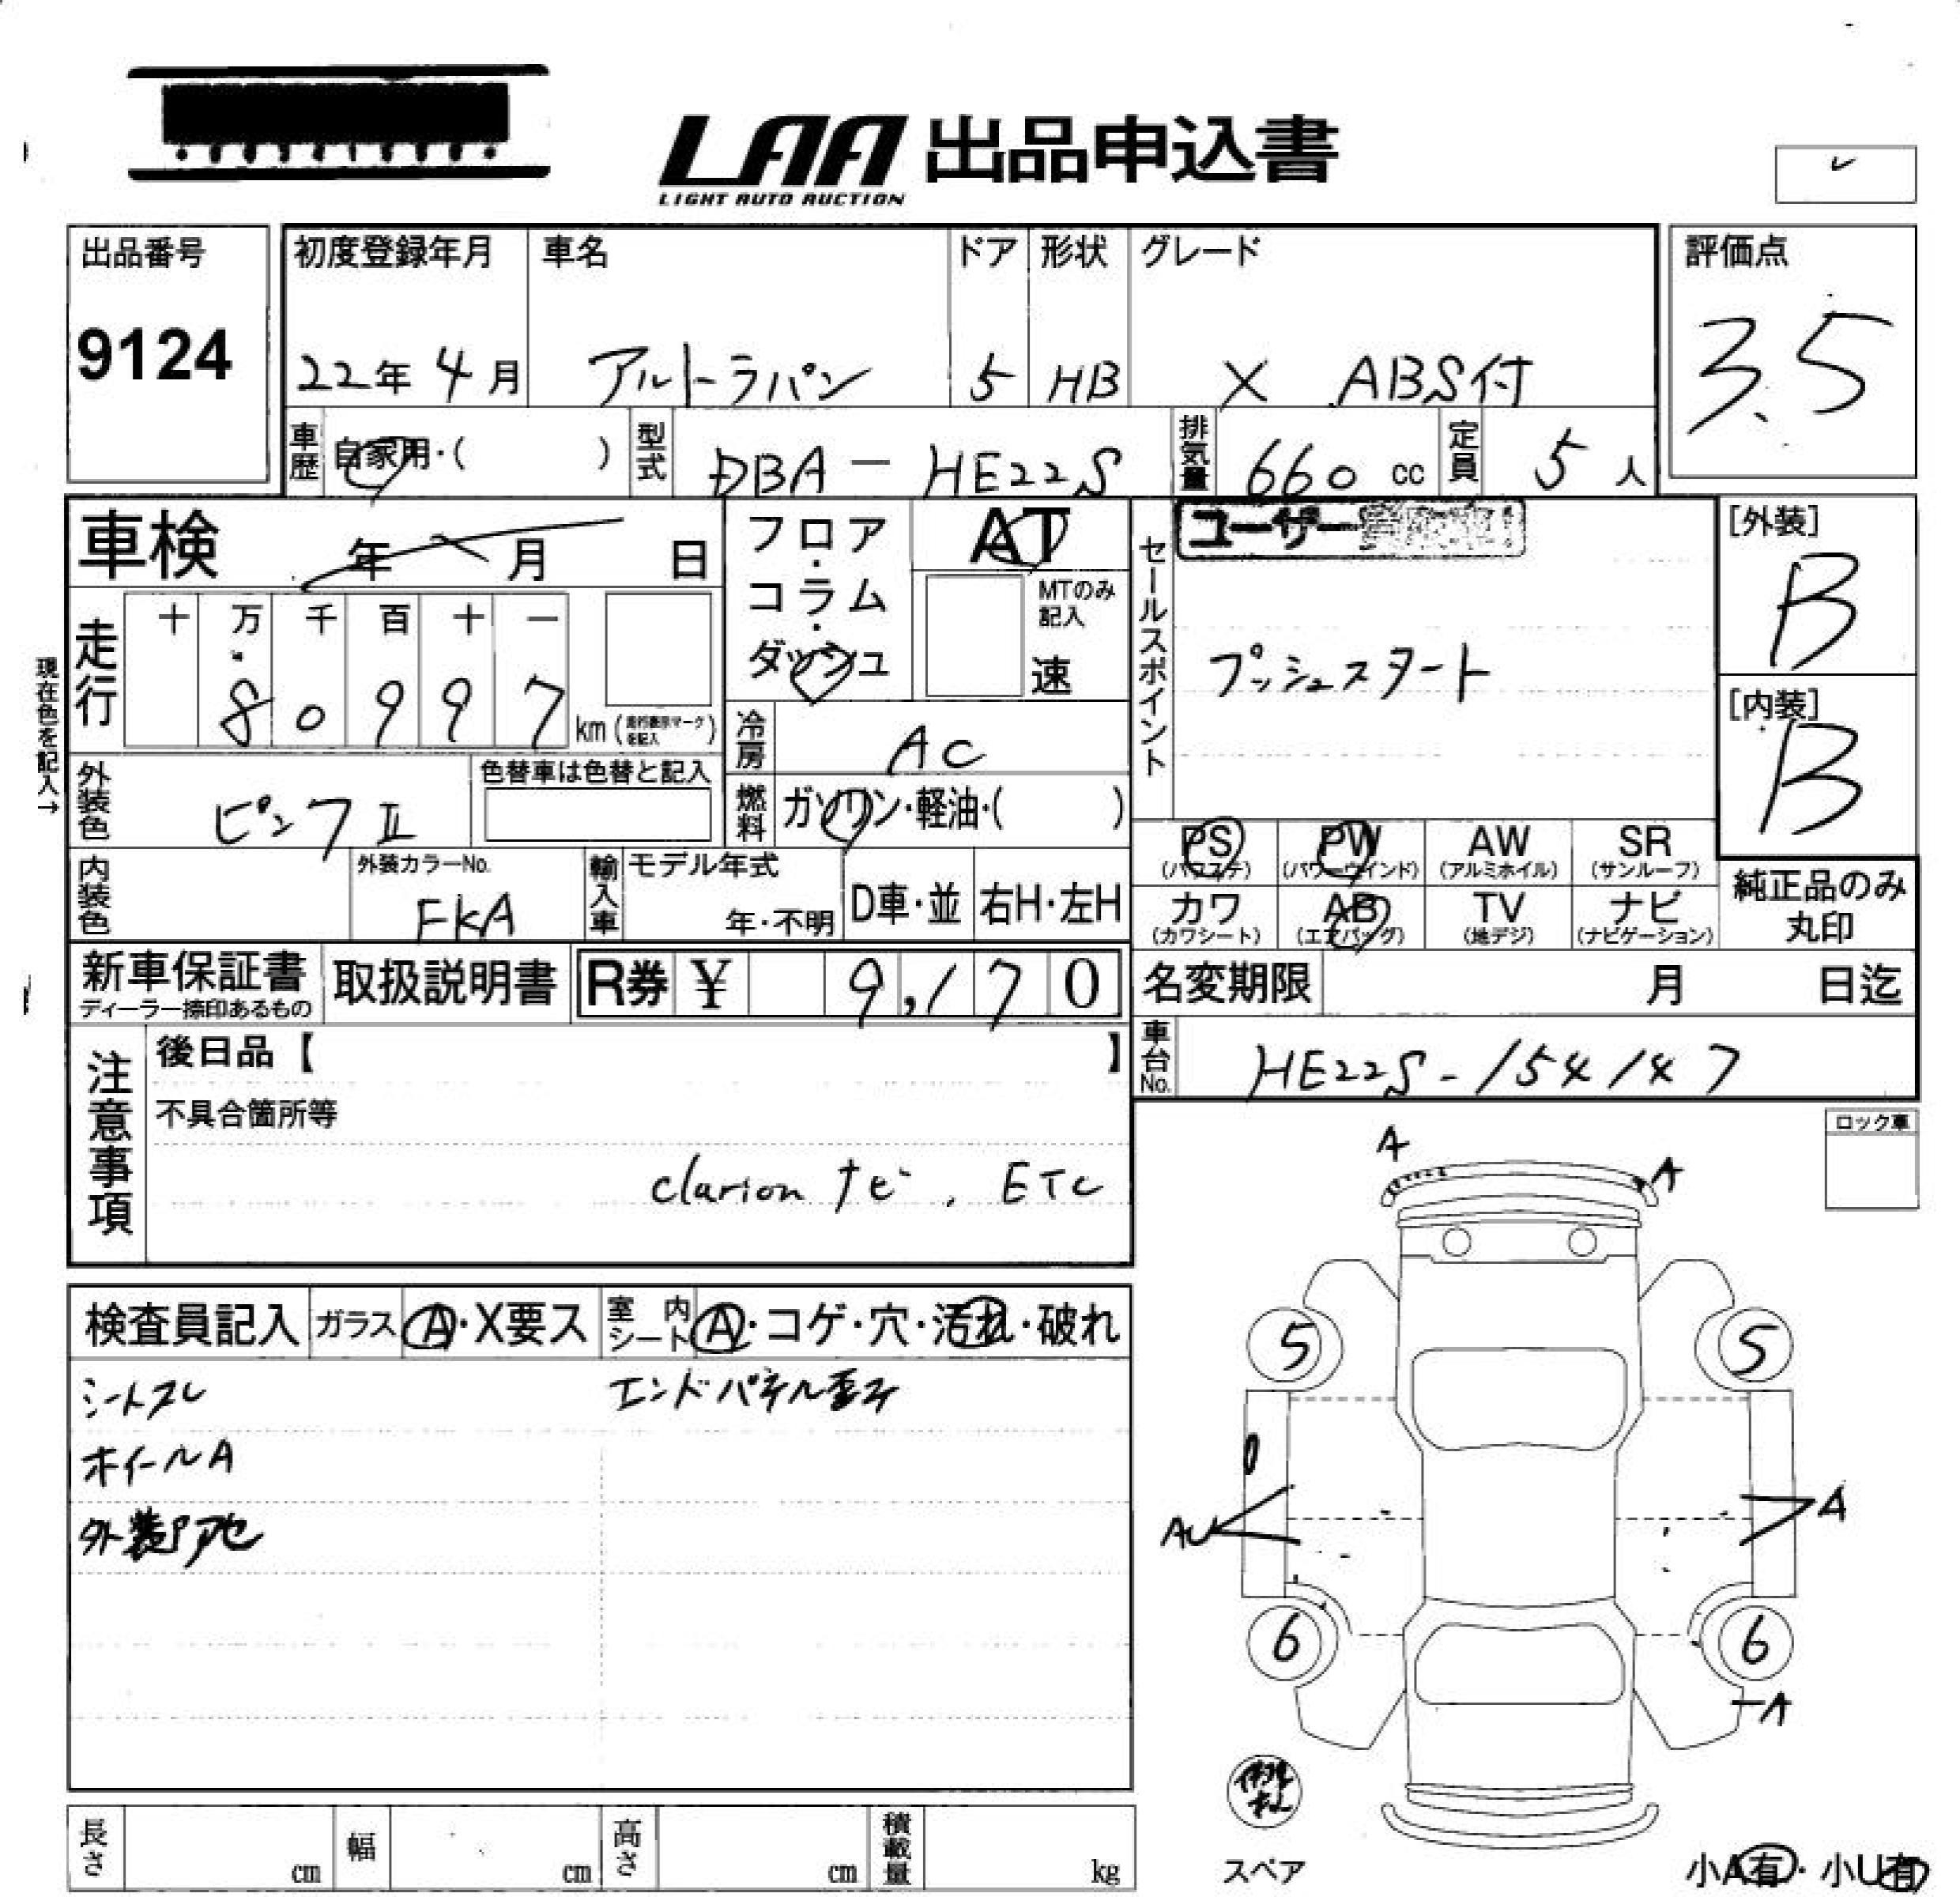 LAA 出品申込書
LIGHT AUTO AUCTION
出品番号
9124
初度登録年月
22年 4月
車名
アルトラパン
ドア
5
形状
HB
グレード
X ABS付
評価点
3.5
車歴 自家用・( )
型式 DBA-HE22S
排気量 660 cc
定員 5 人
車検 年 月 日
フロア・コラム・ダッシュ
AT
MTのみ記入
速
セールスポイント
ユーザー
プッシュスタート
[外装]
B
[内装]
B
現在色を記入→
走行
十 万 千 百 十 一
8 0 9 9 7 km (走行表示マークを記入)
冷房 AC
外装色 ピンクII
色替車は色替と記入
燃料 ガソリン・軽油・( )
内装色
外装カラーNo.
FKA
輸入車 モデル年式
年・不明
D車・並
右H・左H
PS (パワステ)
PW (パワーウインド)
AW (アルミホイル)
SR (サンルーフ)
カワ (カワシート)
AB (エアバッグ)
TV (地デジ)
ナビ (ナビゲーション)
純正品のみ丸印
新車保証書
ディーラー捺印あるもの
取扱説明書
R券 ¥ 9,170
名変期限 月 日迄
車台No. HE22S-154147
注意事項
後日品【 】
不具合箇所等
clarion ナビ, ETC
ロック車
検査員記入
ガラス A・X要ス
室内シート A・コゲ・穴・汚れ・破れ
シートスレ
エンドパネル歪み
ホイールA
A
A
5
5
AU
A
6
6
A
スペア
小A有・小U有
長さ cm
幅 cm
高さ cm
積載量 kg